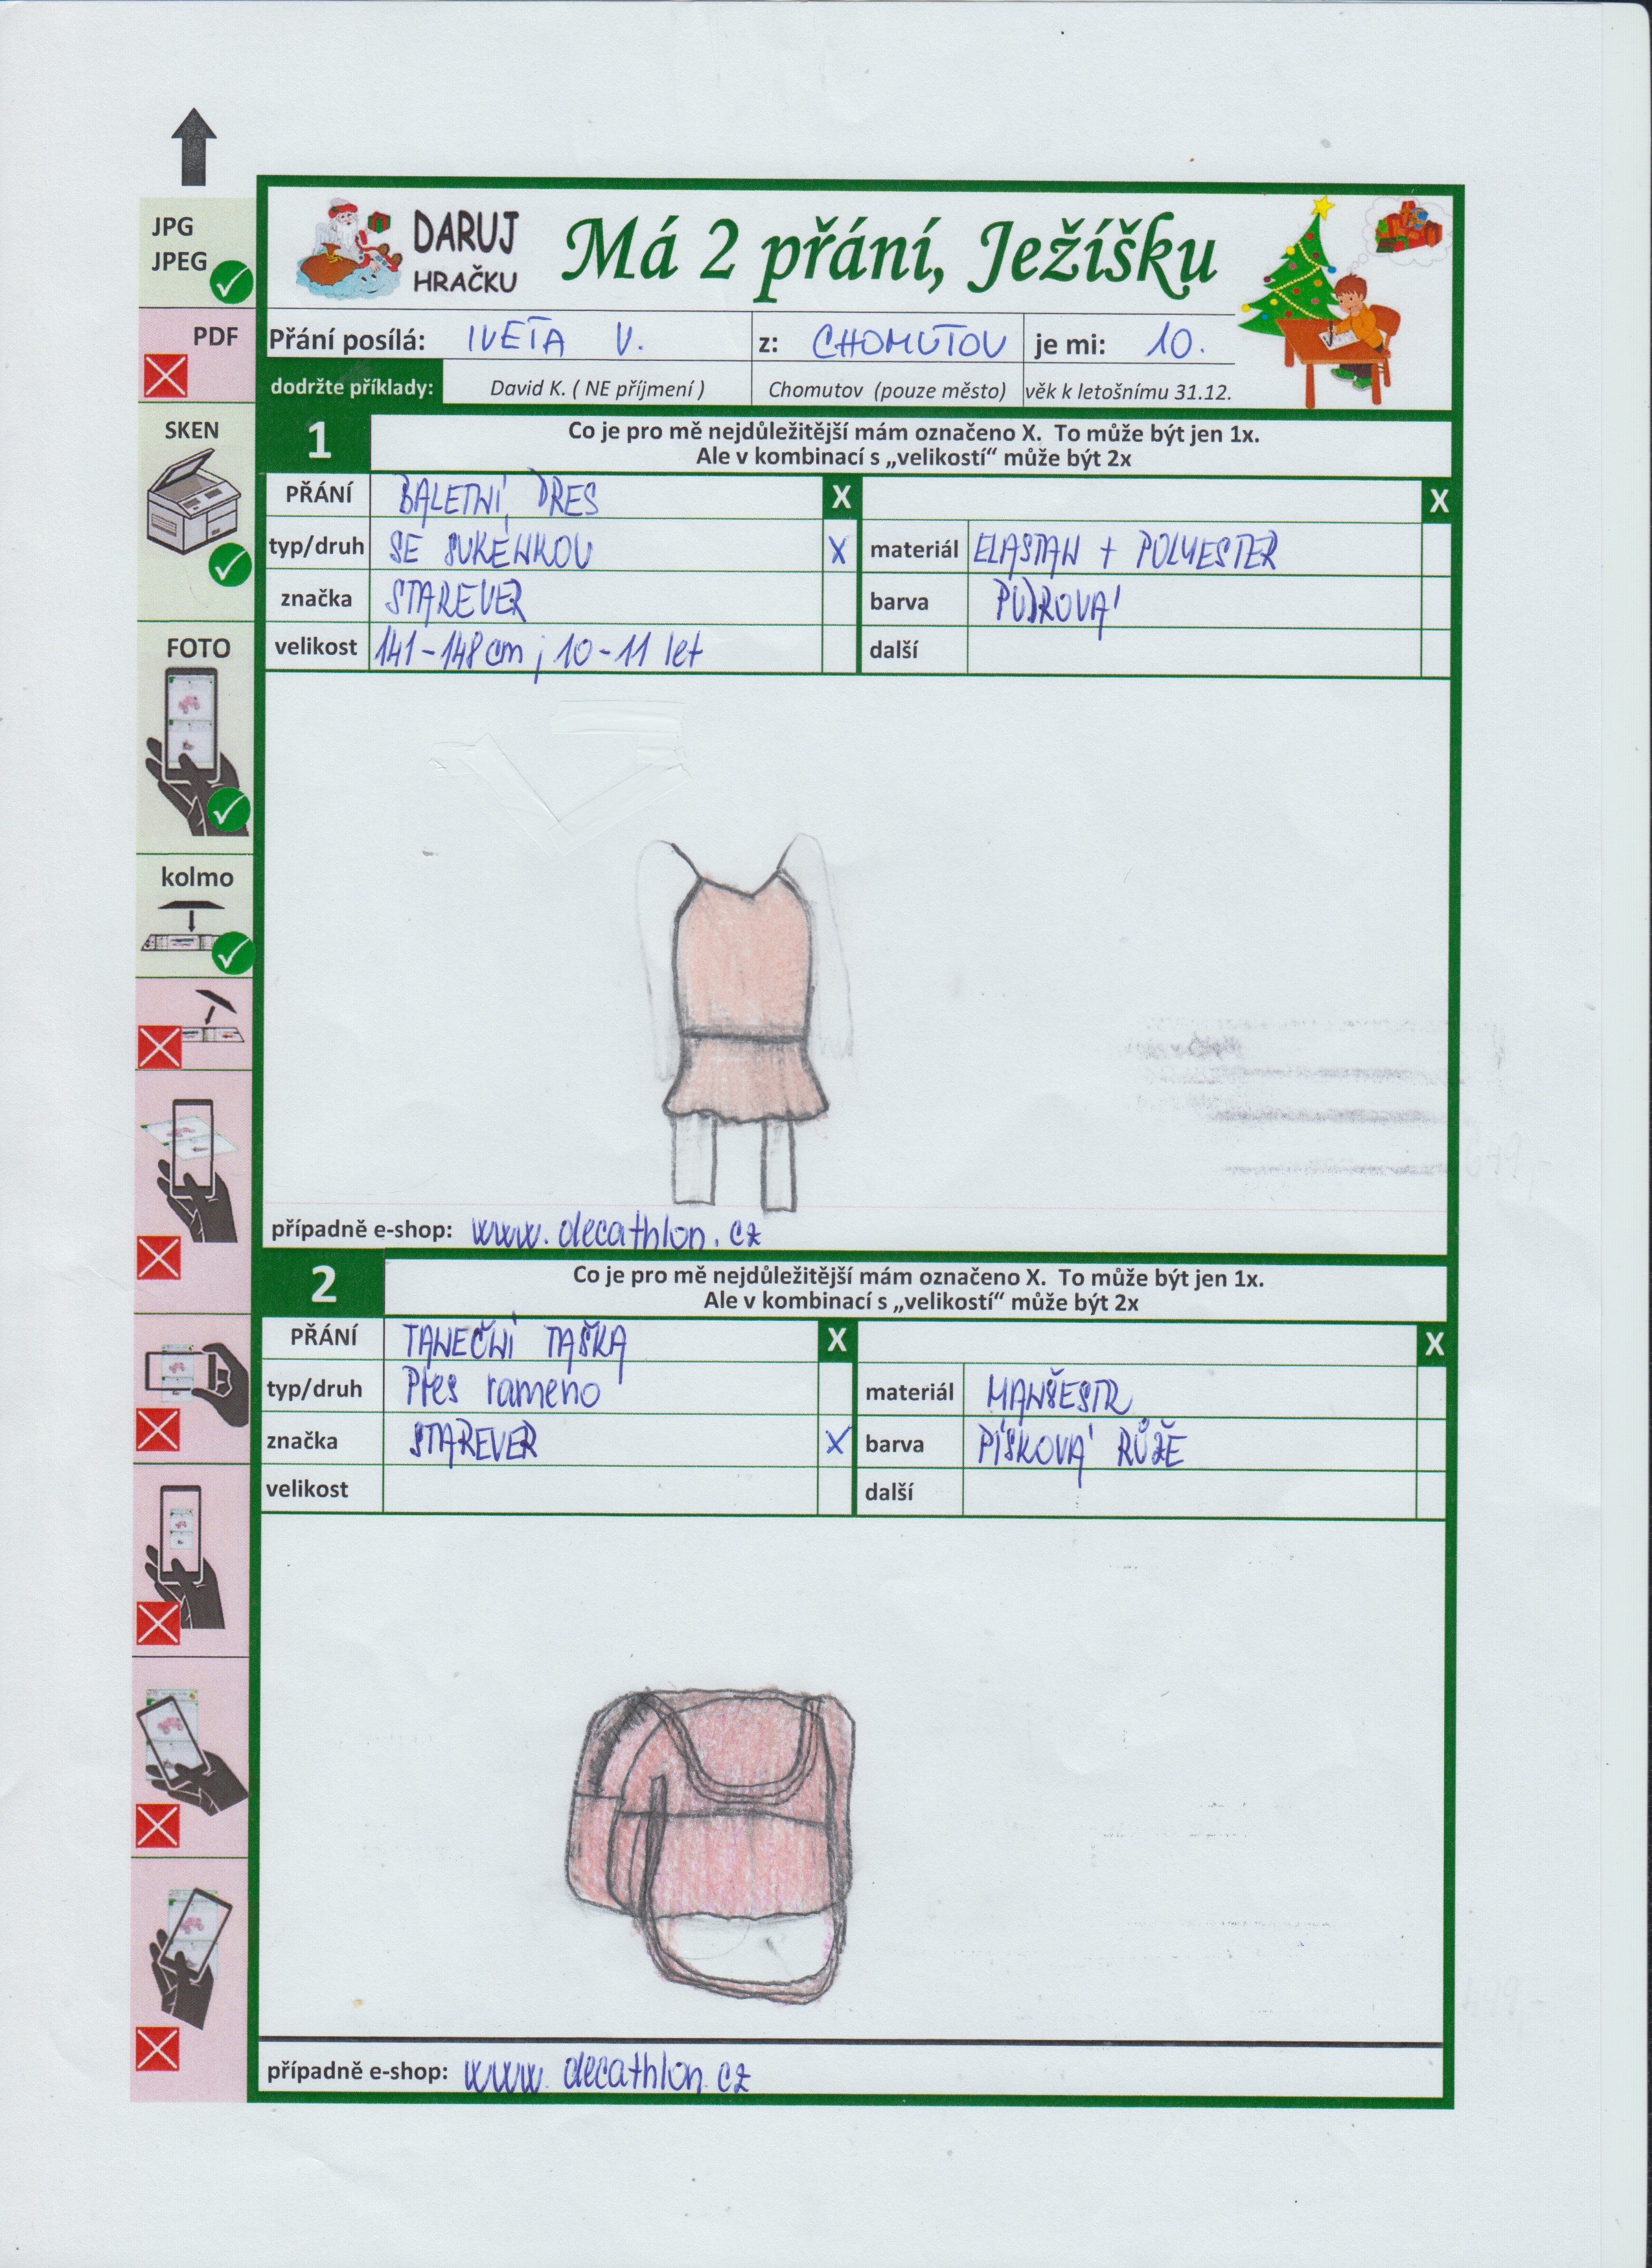 JPG
JPEG
PDF
SKEN
FOTO
kolmo
DARUJ
HRAČKU
Má 2 přání, Ježíšku
Přání posílá: IVETA V. z: CHOMUTOV je mi: 10.
dodržte příklady: David K. ( NE příjmení ) Chomutov (pouze město) věk k letošnímu 31.12.
1 Co je pro mě nejdůležitější mám označeno X. To může být jen 1x.
Ale v kombinací s „velikostí“ může být 2x
PŘÁNÍ BALETNÍ DRES X X
typ/druh SE SUKÉNKOU X materiál ELASTAN + POLYESTER
značka STAREVER barva PUDROVÁ
velikost 141-148 cm ; 10-11 let další
případně e-shop: www.decathlon.cz
2 Co je pro mě nejdůležitější mám označeno X. To může být jen 1x.
Ale v kombinací s „velikostí“ může být 2x
PŘÁNÍ TANEČNÍ TAŠKA X X
typ/druh Přes rameno materiál MANŠESTR
značka STAREVER X barva PÍSKOVÁ RŮŽE
velikost další
případně e-shop: www.decathlon.cz